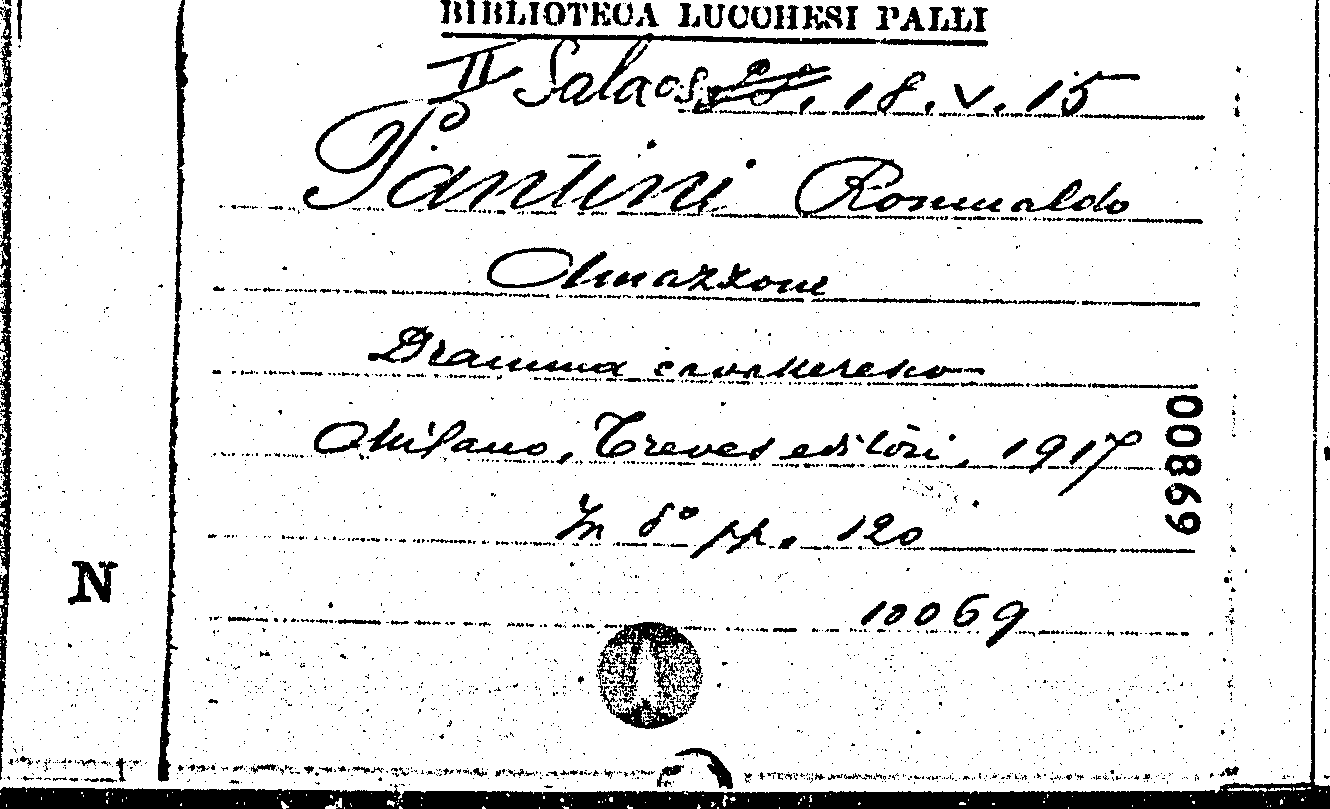 BIBLIOTECA LUCCHESI PALLI
II Sala 18. V. 15
Pantini Romualdo
Amazzone
Dramma cavalleresco
Milano, Treves editori, 1917
In 8° pp. 120
10069
69800
N